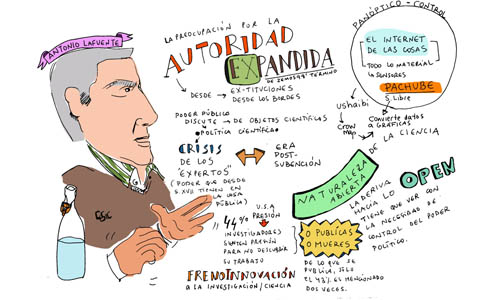 ANTONIO LAFUENTE
LA PREOCUPACIÓN POR LA
AUTORIDAD
EXPANDIDA
DE ZEMOS98 TÉRMINO
DESDE → EX-TITUCIONES
DESDE LOS BORDES
PODER PÚBLICO
DISCUTE → DE OBJETOS CIENTÍFICOS
POLÍTICA CIENTÍFICA
CRISIS
DE LOS
"EXPERTOS"
(PODER QUE DESDE
S. XVII TIENEN EN
LA COSA
PÚBLICA)
ERA
POST-
SUBENCIÓN
U.S.A
44% PRESIÓN
INVESTIGADORES
PRESIÓN
PARA NO DESCUBRIR
SU TRABAJO
FRENOINNOVACIÓN
A LA INVESTIGACIÓN/CIENCIA
PANÓPTICO - CONTROL
EL INTERNET
DE LAS COSAS
TODO LO MATERIAL
SENSORES
PACHUBE
S. Libre
Ushaibi
Crow
map
Convierte datos
a GRÁFICAS
NATURALEZA
ABIERTA
DE LA CIENCIA
LA DERIVA
HACIA LO OPEN
TIENE QUE VER CON
LA NECESIDAD DE
CONTROL DEL PODER
POLÍTICO.
O PUBLICAS
O MUERES
DE LO QUE SE
PUBLICA, SÓLO
EL 43% ES MENCIONADO
DOS VECES.